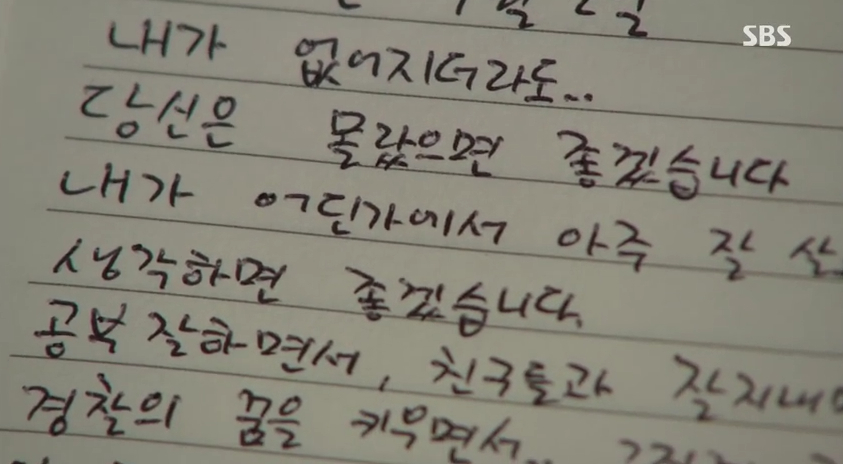 SBS
내가 없어지더라도..
당신은 몰랐으면 좋겠습니다
내가 어딘가에서 아주 잘
생각하면 좋겠습니다.
공부 잘하면서, 친구들과
경찰의 꿈을 키우면서..